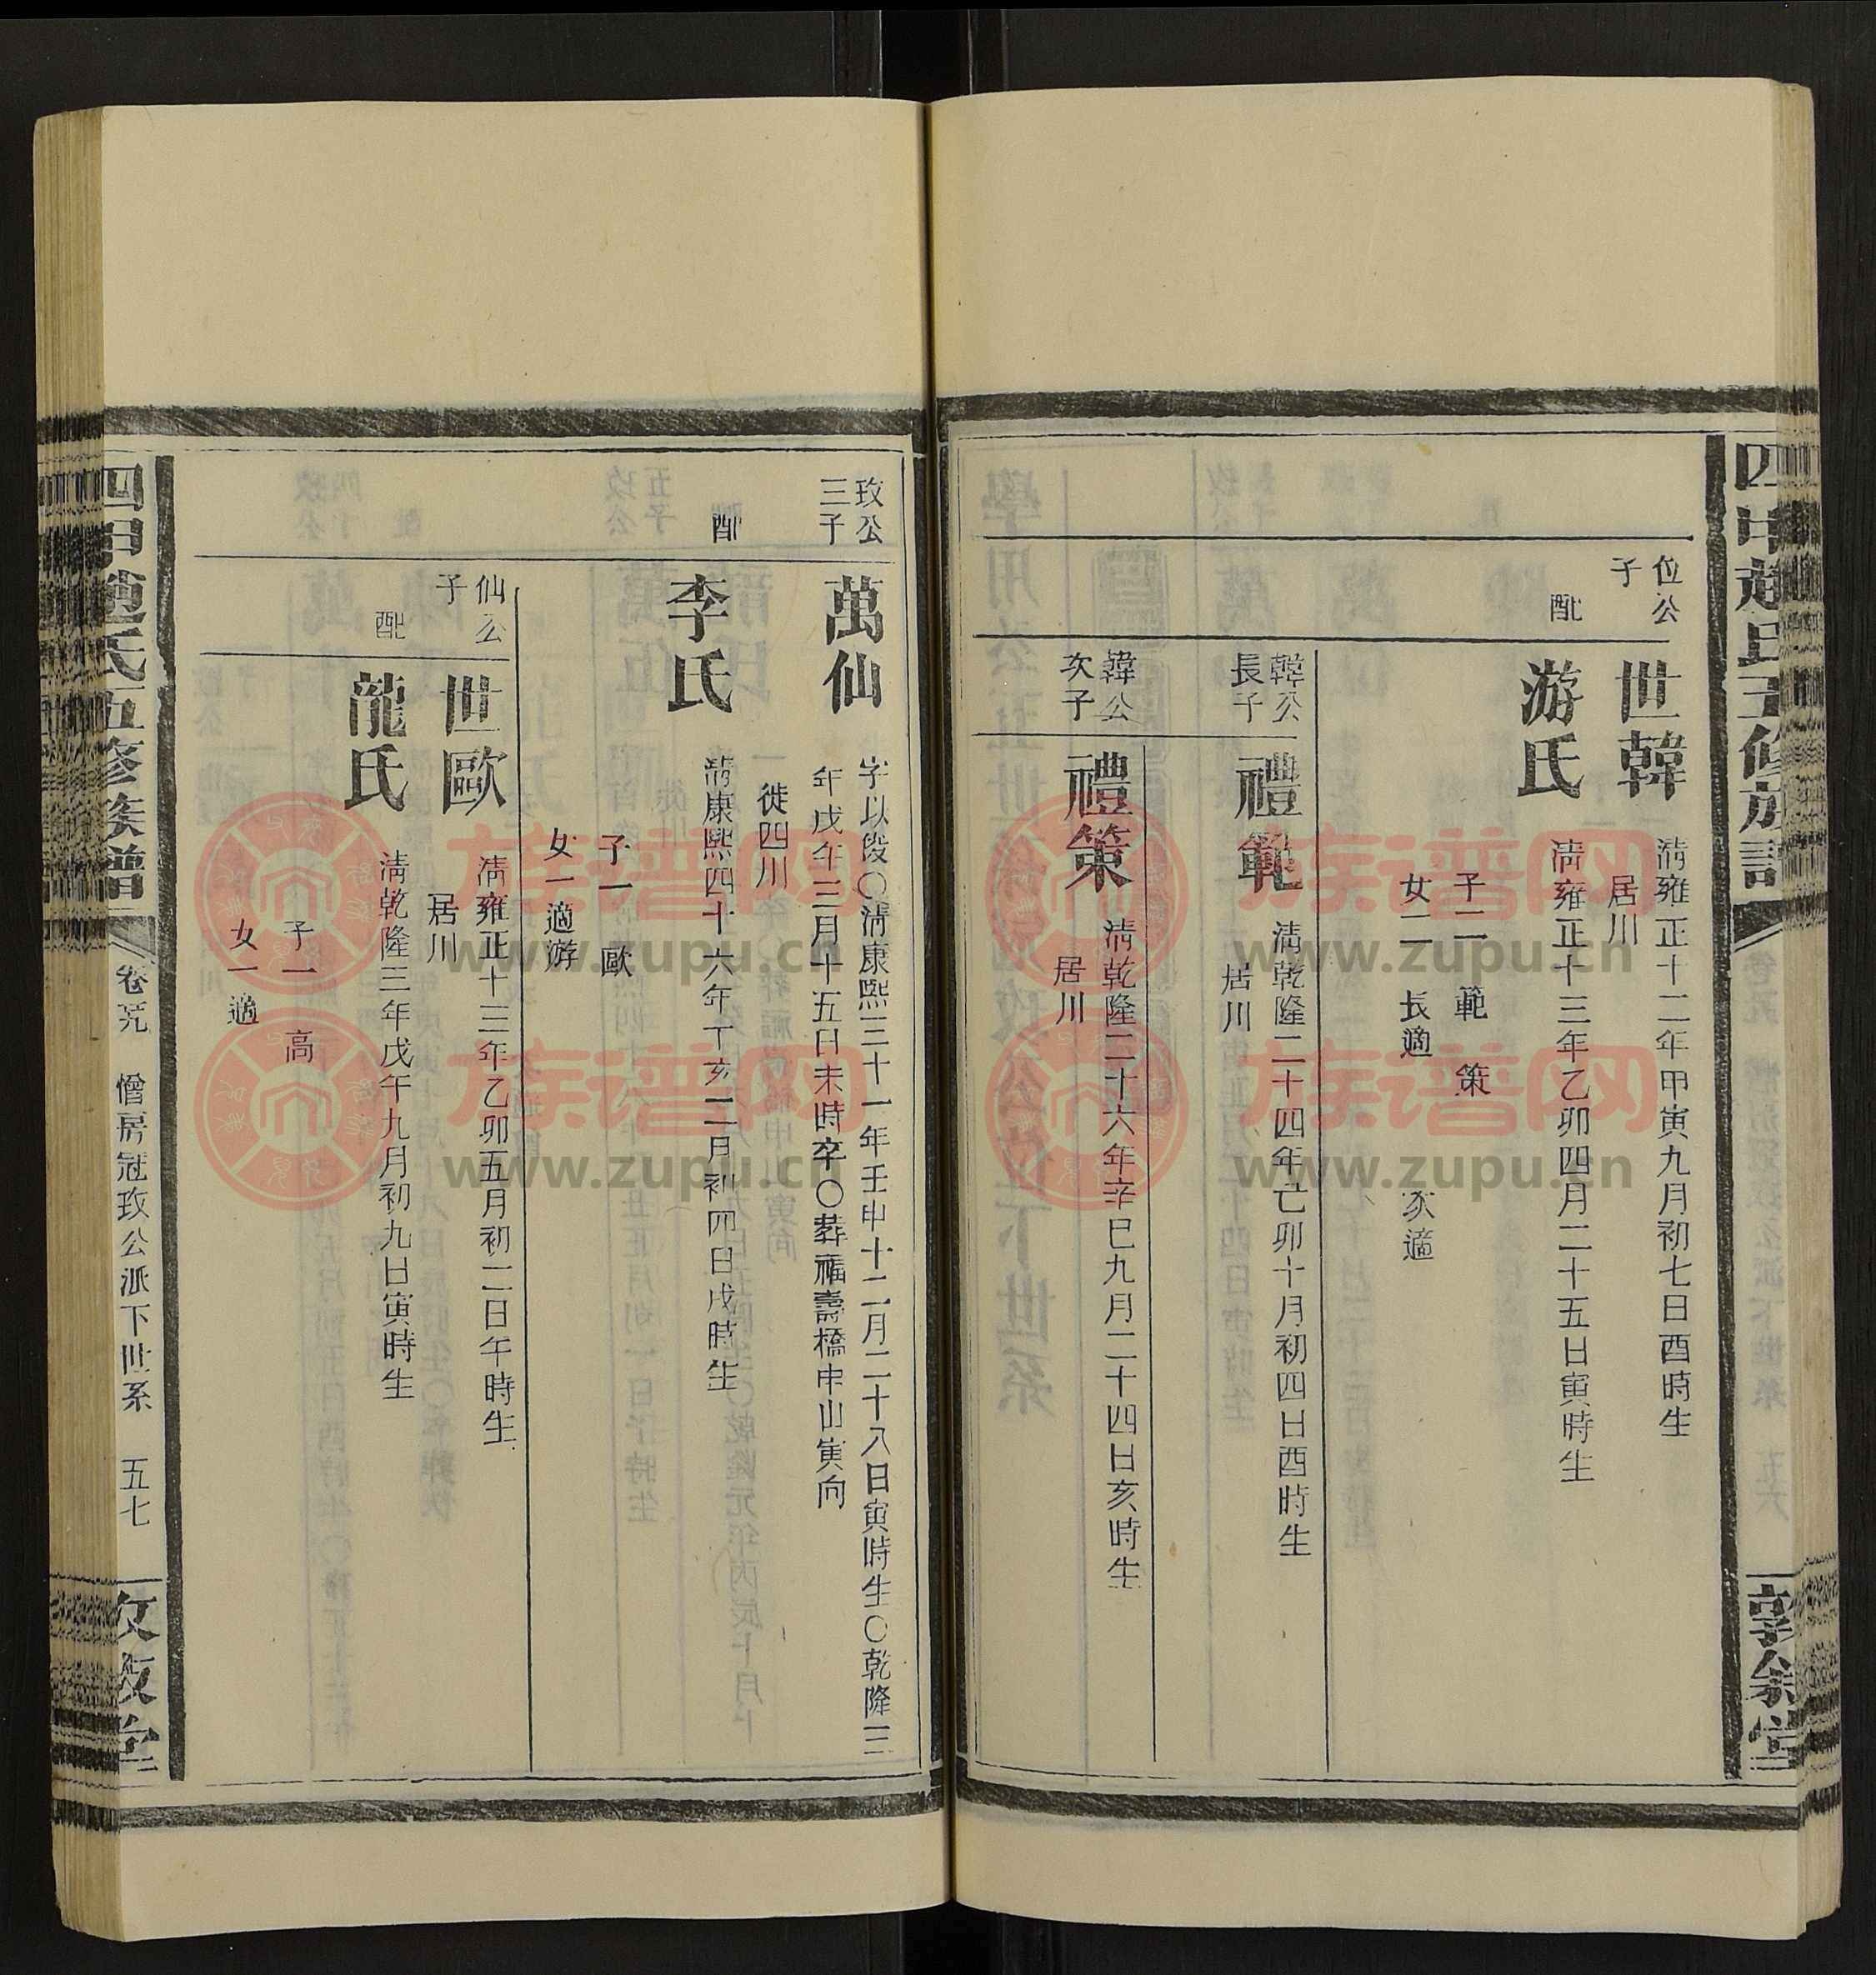 位公
子
世韓
清雍正十二年甲寅九月初七日酉時生
居川
配
游氏
清雍正十三年乙卯四月二十五日寅時生
子二 範 策
女二 長適 次適
韓公
長子
禮範
清乾隆二十四年己卯十月初四日酉時生
居川
韓公
次子
禮策
清乾隆二十六年辛巳九月二十四日亥時生
居川
玫公
三子
萬仙
字以俊○清康熙三十一年壬申十二月二十八日寅時生○乾隆三
年戊午三月十五日未時卒○葬福壽橋申山寅向
徙四川
配
李氏
清康熙四十六年丁亥二月初四日戌時生
子一 歐
女一適游
仙公
子
世歐
清雍正十三年乙卯五月初二日午時生
居川
配
龍氏
清乾隆三年戊午九月初九日寅時生
子一 高
女一適
四甲趙氏五修族譜
僧房冠玫公派下世系
五七
族谱网
www.zupu.cn
族谱网
www.zupu.cn
族谱网
www.zupu.cn
族谱网
www.zupu.cn